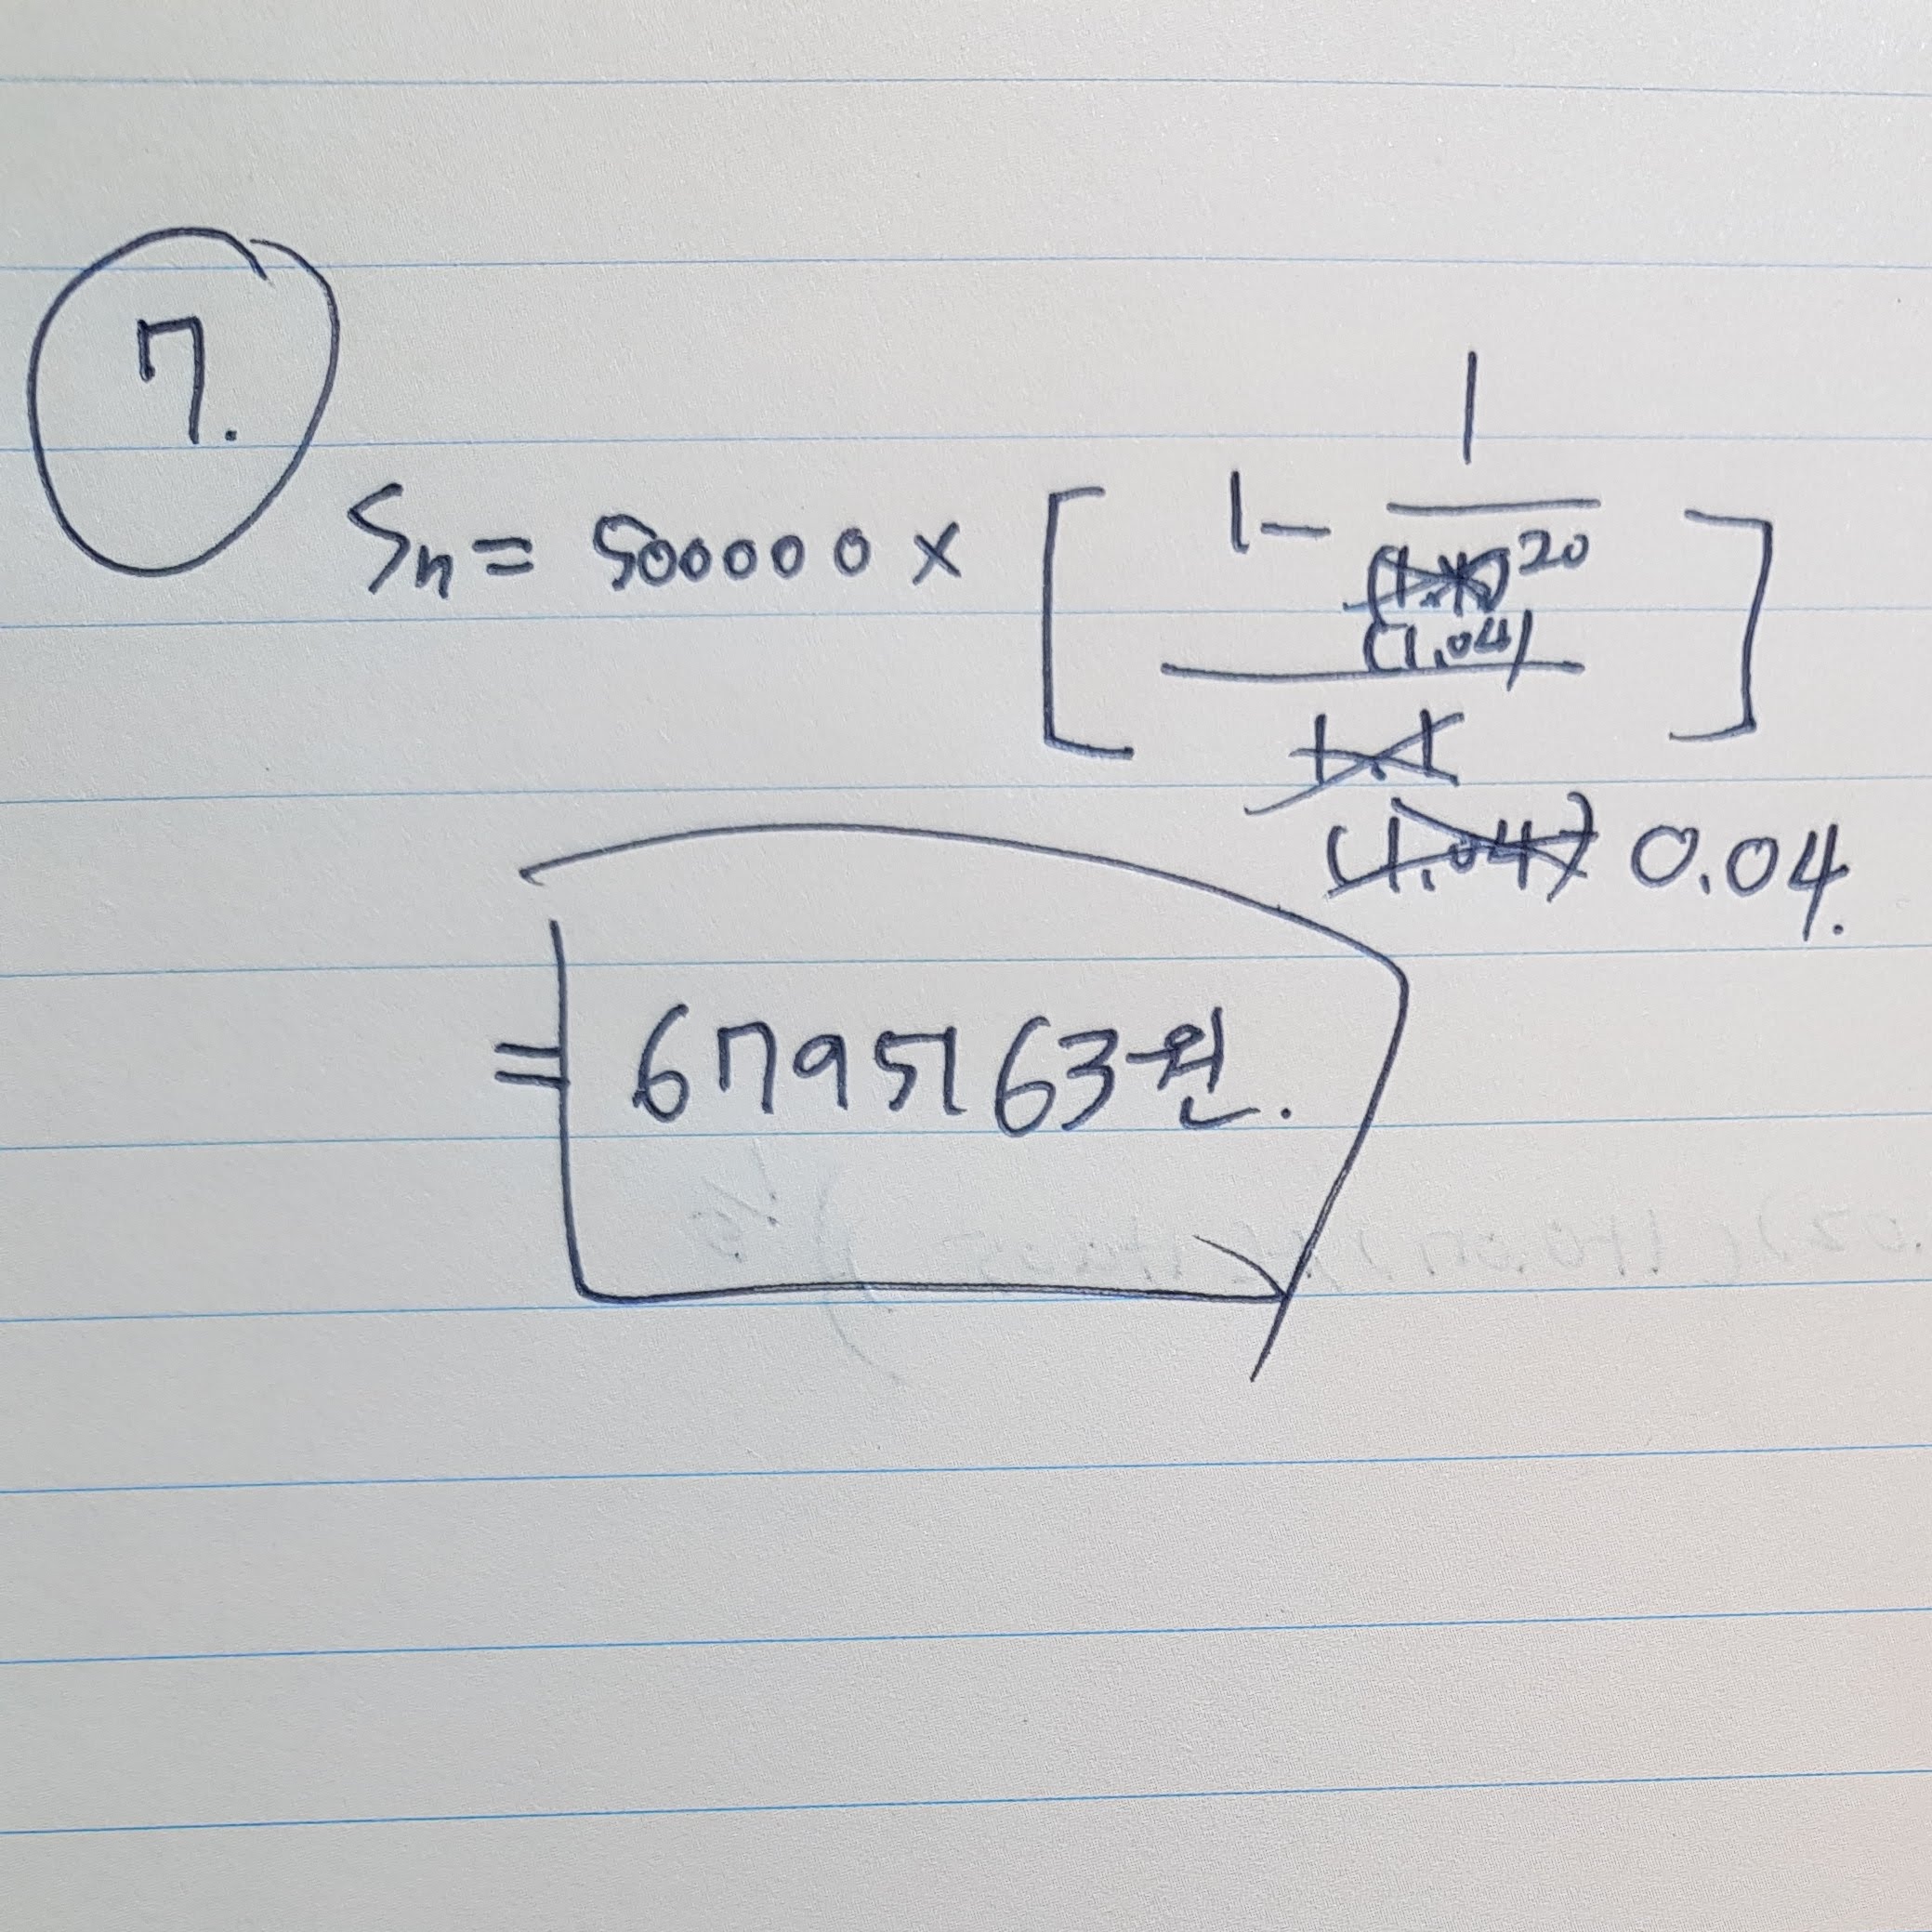 7.
Sn = 500000 × [ 1 - 1 / (1.04)^20 / 0.04. ]
= 6795163원.